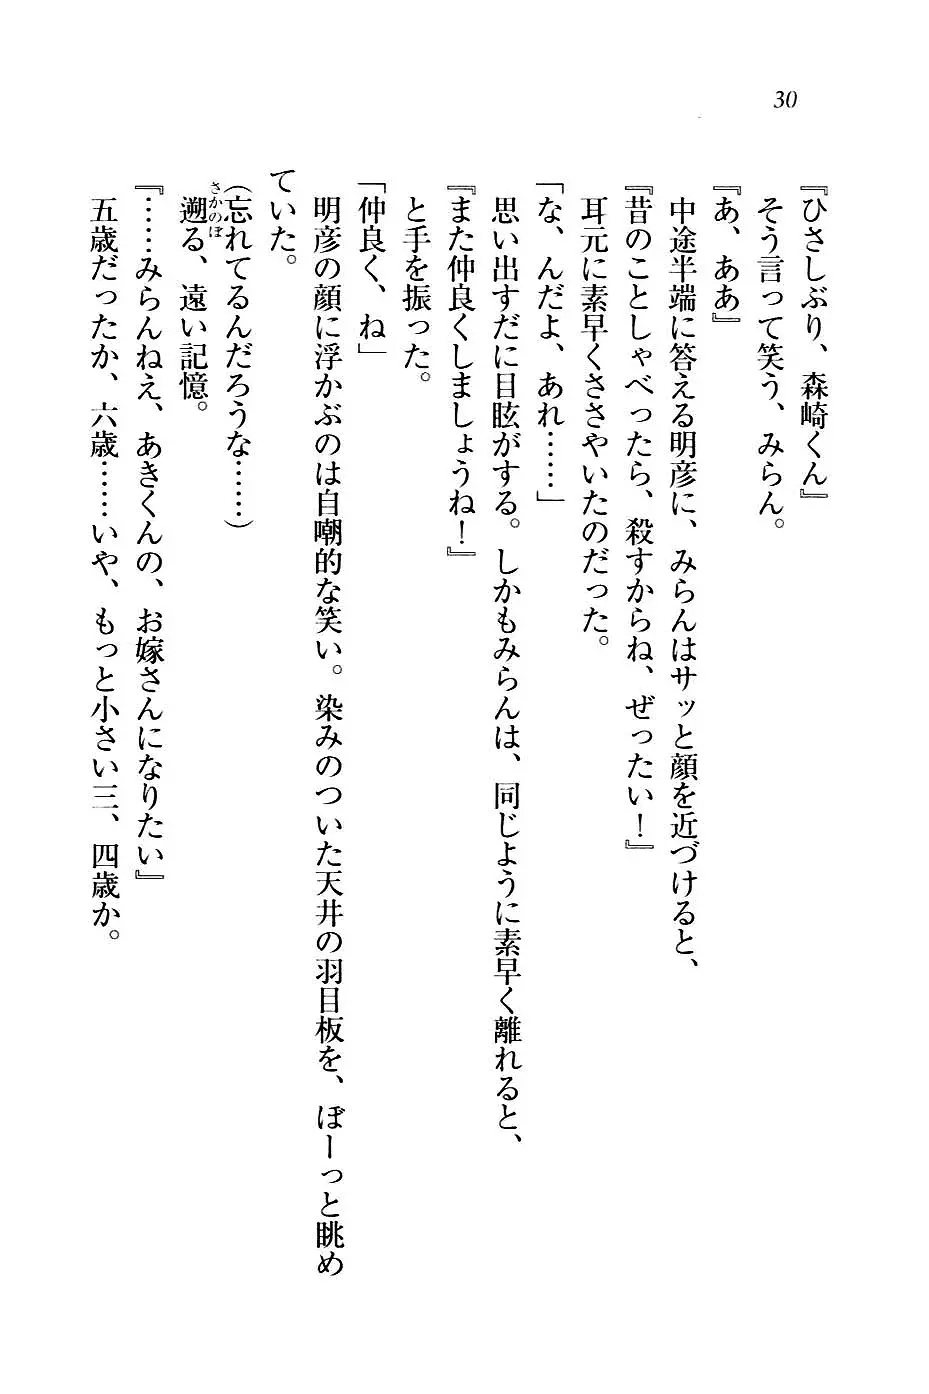 30
『ひさしぶり、森崎くん』
そう言って笑う、みらん。
『あ、ああ』
中途半端に答える明彦に、みらんはサッと顔を近づけると、
『昔のことしゃべったら、殺すからね、ぜったい！』
耳元に素早くささやいたのだった。
「な、んだよ、あれ……」
思い出すだに目眩がする。しかもみらんは、同じように素早く離れると、
『また仲良くしましょうね！』
と手を振った。
「仲良く、ね」
明彦の顔に浮かぶのは自嘲的な笑い。染みのついた天井の羽目板を、ぼーっと眺め
ていた。
（忘れてるんだろうな……）
遡る、遠い記憶。
さかのぼ
『……みらんねえ、あきくんの、お嫁さんになりたい』
五歳だったか、六歳……いや、もっと小さい三、四歳か。